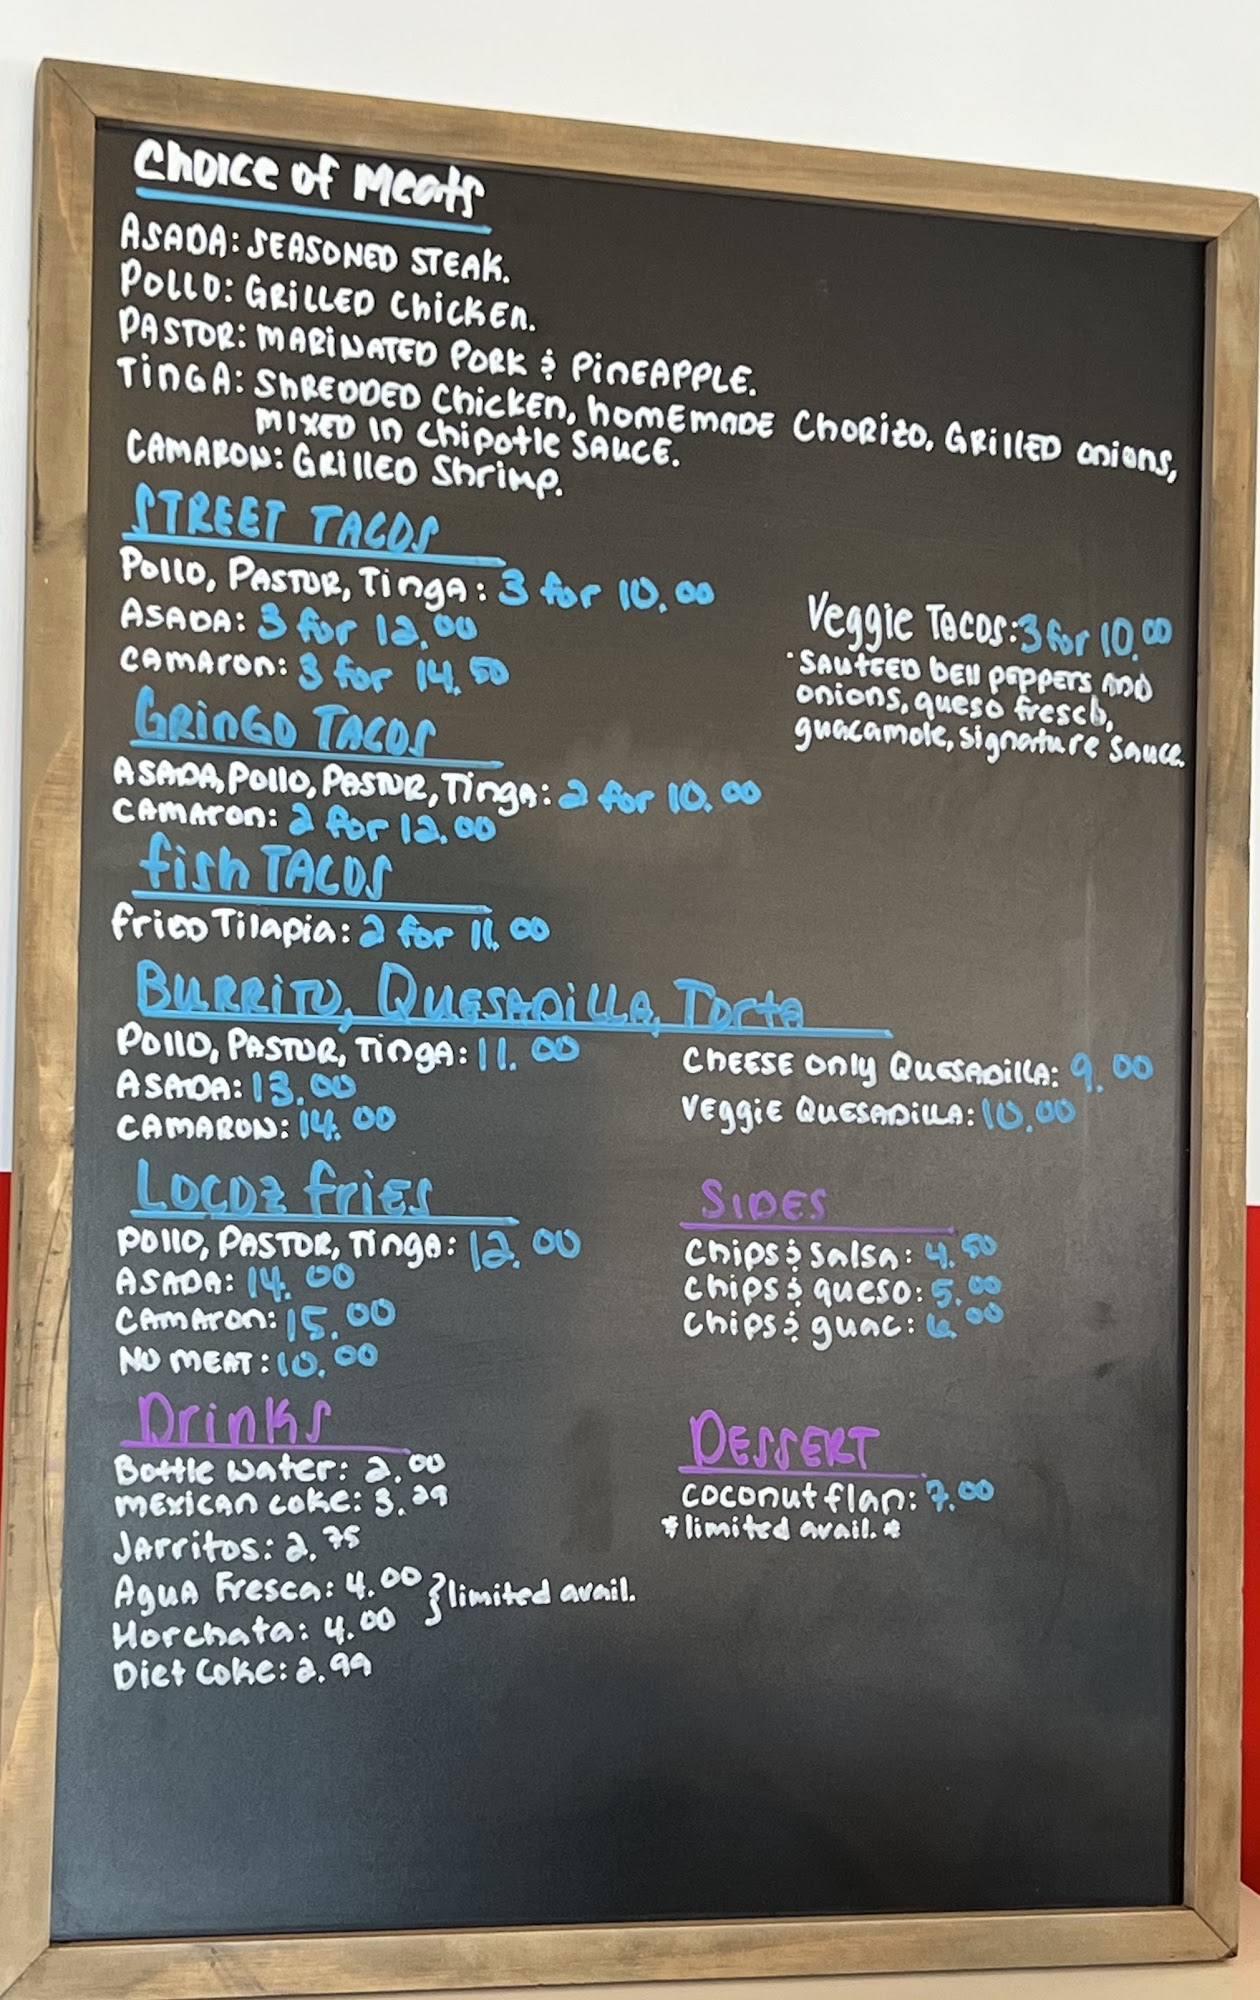 Choice of Meats
ASADA: SEASONED STEAK.
POLLO: GRILLED CHICKEN.
PASTOR: MARINATED PORK & PINEAPPLE.
TINGA: SHREDDED CHICKEN, HOMEMADE CHORIZO, GRILLED ONIONS,
MIXED IN CHIPOTLE SAUCE.
CAMARON: GRILLED SHRIMP.
STREET TACOS
POLLO, PASTOR, TINGA: 3 for 10.00
ASADA: 3 for 12.00
CAMARON: 3 for 14.50
Veggie TACOS: 3 for 10.00
• SAUTEED bell peppers AND
onions, queso fresco,
guacamole, signature sauce.
GRINGO TACOS
ASADA, POLLO, PASTOR, TINGA: 2 for 10.00
CAMARON: 2 for 12.00
fish TACOS
FRIED Tilapia: 2 for 11.00
BURRITO, QUESADILLA, Torta
POLLO, PASTOR, TINGA: 11.00
ASADA: 13.00
CAMARON: 14.00
CHEESE only QUESADILLA: 9.00
VEGGIE QUESADILLA: 10.00
LOCOZ fRIES
POLLO, PASTOR, TINGA: 12.00
ASADA: 14.00
CAMARON: 15.00
NO MEAT: 10.00
SIDES
Chips & salsa: 4.50
Chips & queso: 5.00
Chips & guac: 6.00
Drinks
Bottle water: 2.00
mexican coke: 3.29
Jarritos: 2.75
Agua Fresca: 4.00 } limited avail.
Horchata: 4.00
Diet Coke: 2.99
DESSERT
coconut flan: 7.00
*limited avail.*